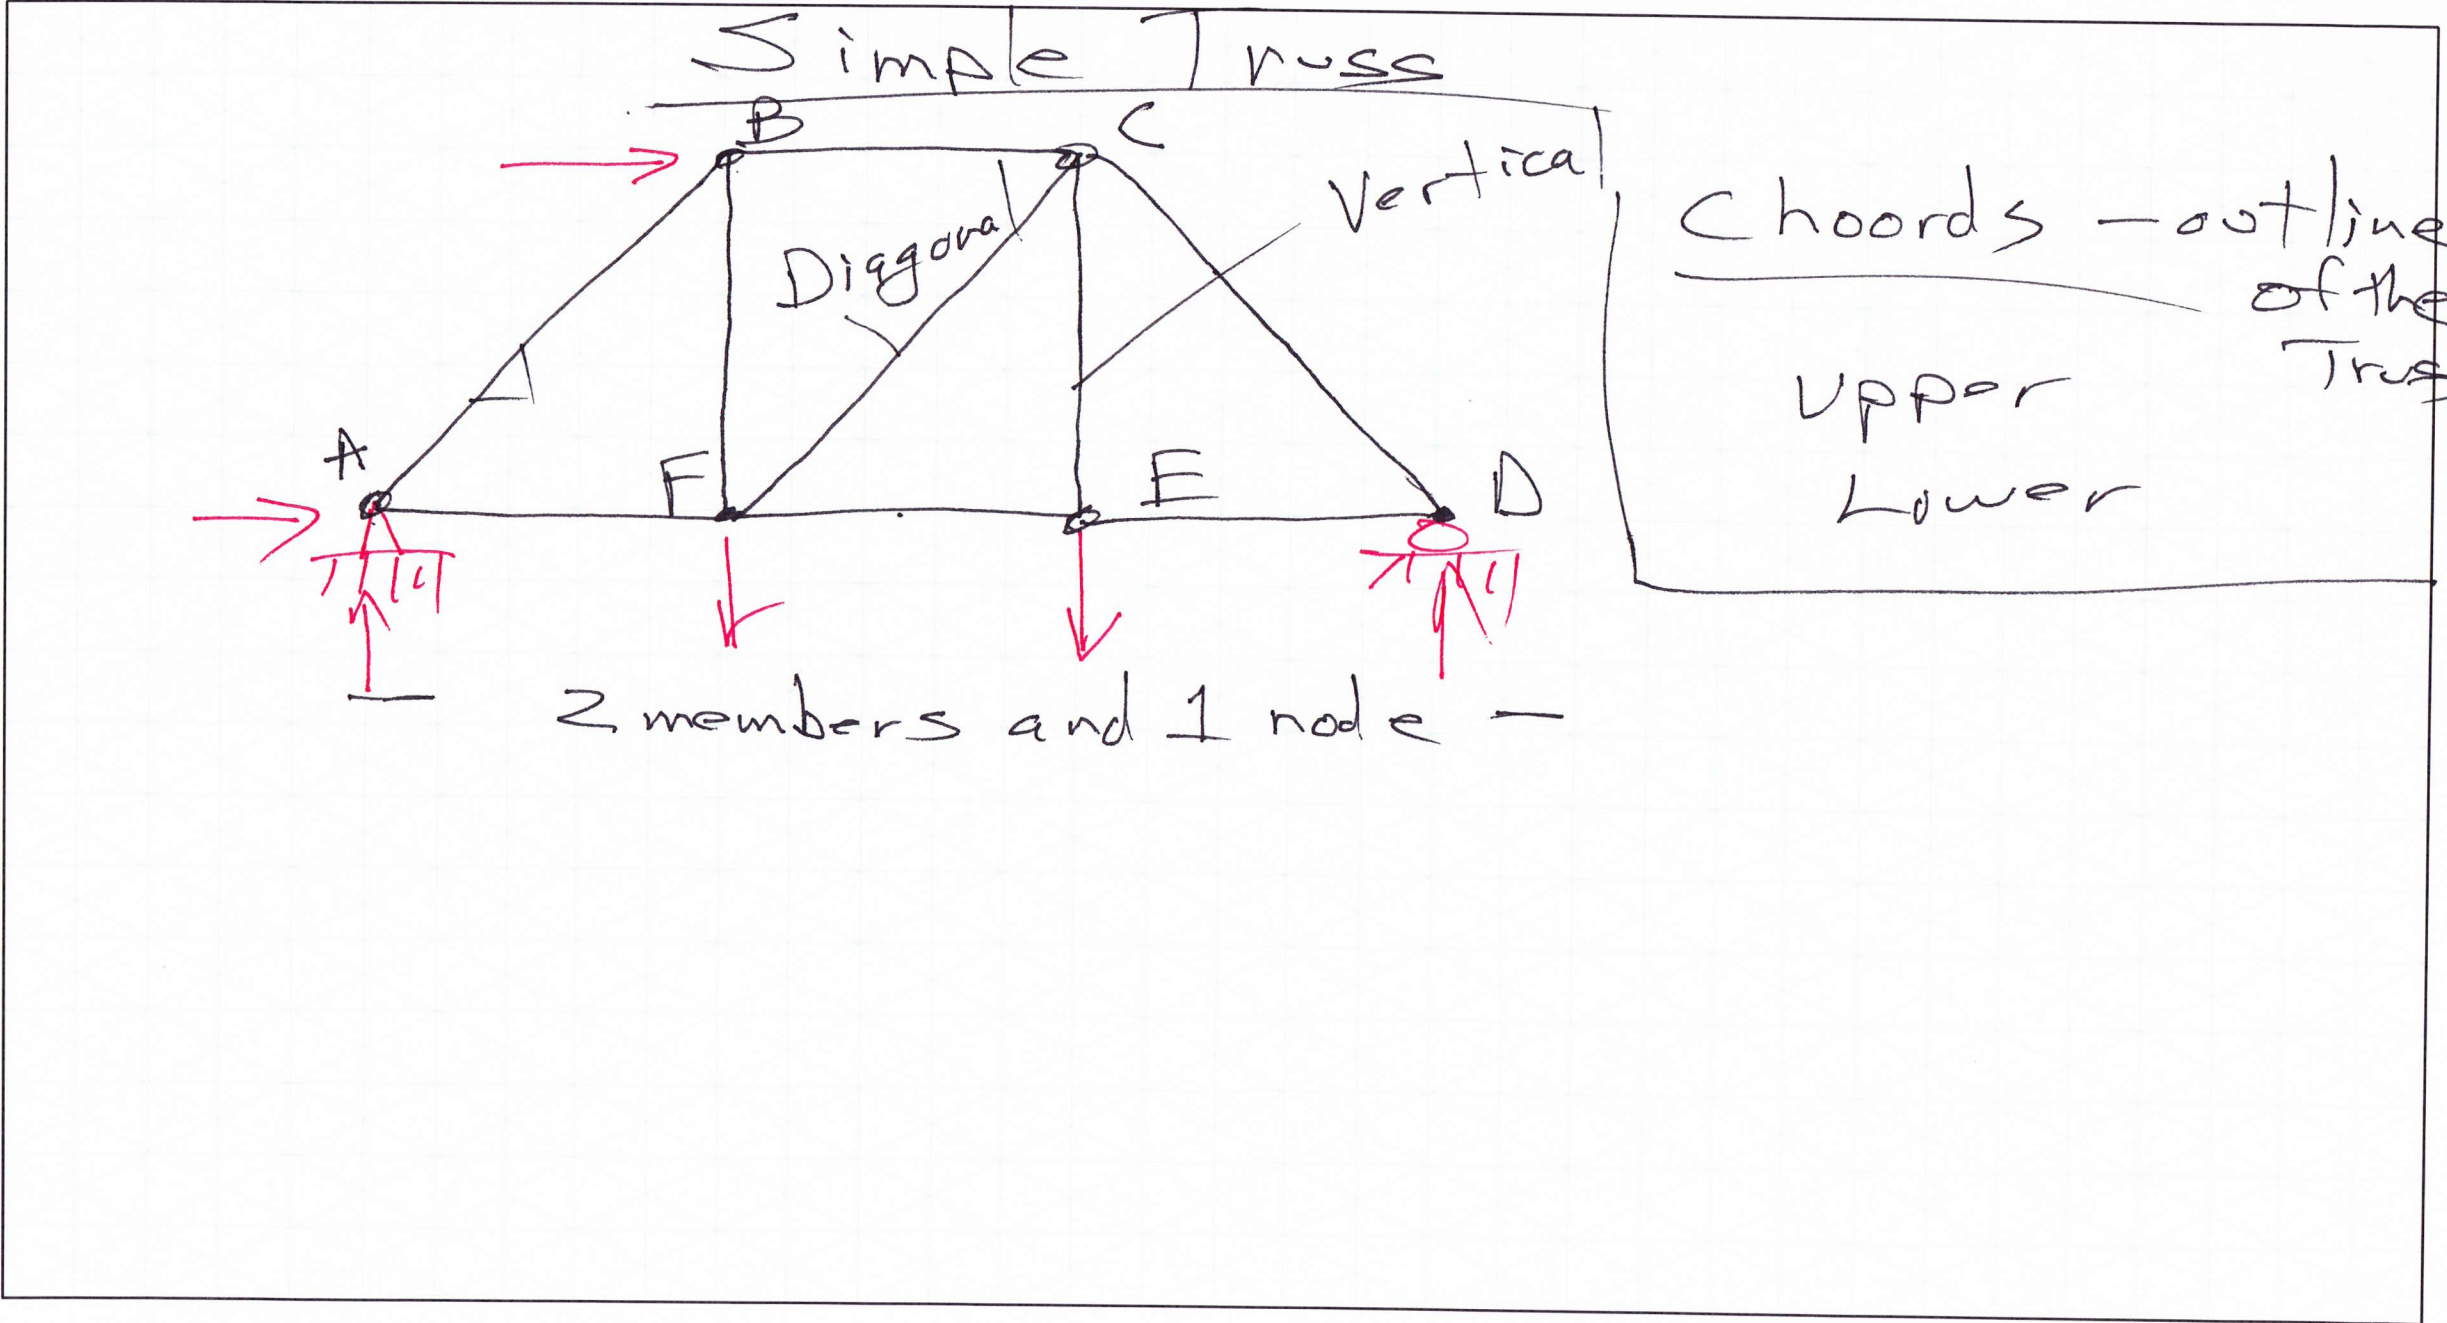 Simple Truss
B
C
Vertical
Diagonal
A
F
E
D
Choords - outline
of the
Trus
Upper
Lower
- 2 members and 1 node -